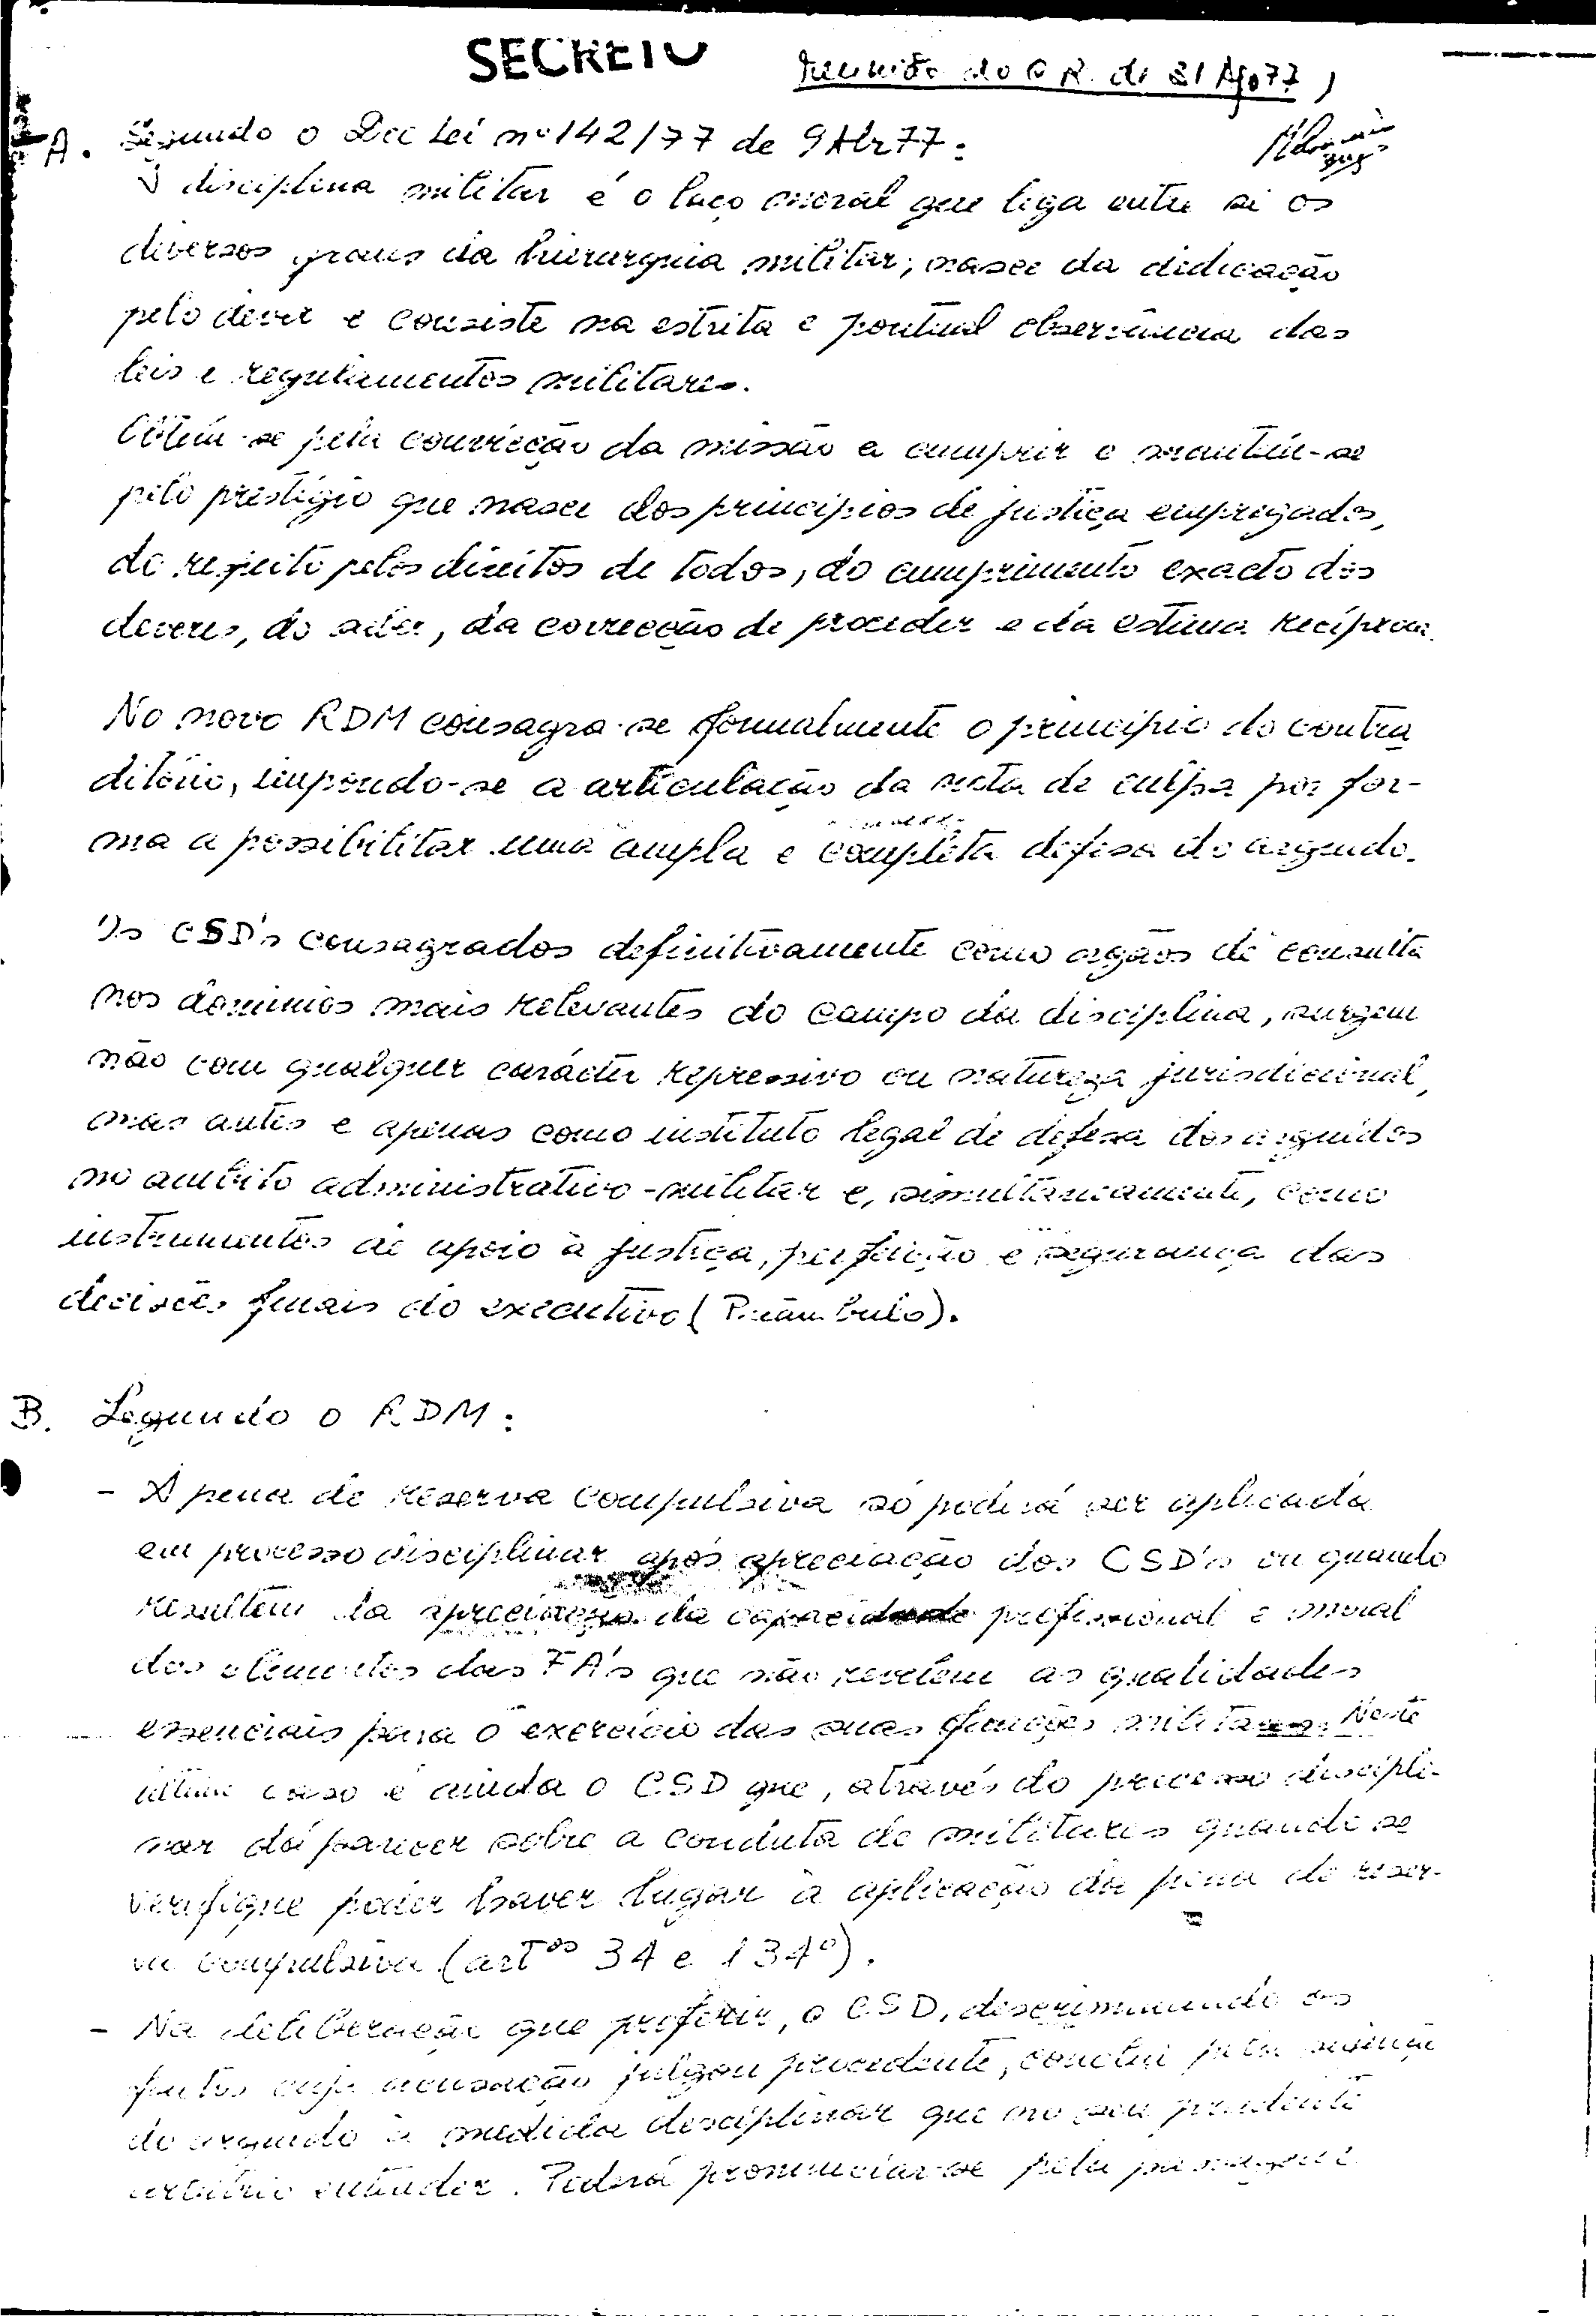 SECRETO
Reunião do C.R. de 31 Ago 77
A. Segundo o Dec Lei nº 142/77 de 9Abr77:
A disciplina militar é o laço moral que liga entre si os
diversos graus da hierarquia militar; nasce da dedicação
pelo dever e consiste na estrita e pontual observância das
leis e regulamentos militares.
Obtém-se pela convicção da missão a cumprir e mantém-se
pelo prestígio que nasce dos princípios de justiça empregados,
do respeito pelos direitos de todos, do cumprimento exacto dos
deveres, do saber, da correcção de proceder e da estima recíproca.
No novo RDM consagra-se formalmente o princípio do contra
ditório, impondo-se a articulação da nota de culpa por for-
ma a possibilitar uma ampla e completa defesa do arguido.
Os CSD's consagrados definitivamente como orgãos de consulta
nos domínios mais relevantes do campo da disciplina, surgem
não com qualquer carácter repressivo ou natureza jurisdicional,
mas antes e apenas como instituto legal de defesa dos arguidos
no âmbito administrativo-militar e, simultaneamente, como
instrumentos de apoio à justiça, perfeição e segurança das
decisões finais do executivo (Preâmbulo).
B. Segundo o RDM:
- A pena de reserva compulsiva só poderá ser aplicada
em processo disciplinar após apreciação dos CSD's ou quando
resultem da apreciação da capacidade profissional e moral
dos elementos das FA's que não revelem as qualidades
essenciais para o exercício das suas funções militares. Neste
último caso é ainda o CSD que, através do processo discipli-
nar dá parecer sobre a conduta de militares quando se
verifique poder haver lugar à aplicação da pena de reser-
va compulsiva (artºs 34 e 134º).
- Na deliberação que proferir, o CSD, discriminando os
factos cuja acusação julgou procedente, conclui pela sujeição
do arguido à medida disciplinar que no seu prudente
arbítrio entender. Poderá pronunciar-se pela